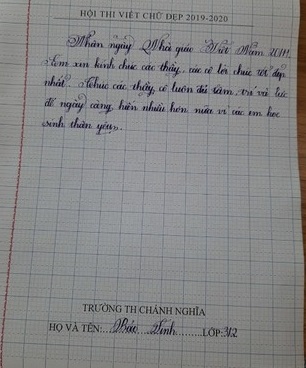 HỘI THI VIẾT CHỮ ĐẸP 2019-2020
Nhân ngày Nhà giáo Việt Nam 20/11
Em xin kính chúc các thầy, các cô lời chúc tốt đẹp
nhất. Chúc các thầy, cô luôn đủ tâm, trí và lực
để ngày càng hiến nhiều hơn nữa vì các em học
sinh thân yêu.
TRƯỜNG TH CHÁNH NGHĨA
HỌ VÀ TÊN: Bảo Vinh LỚP: 3/2